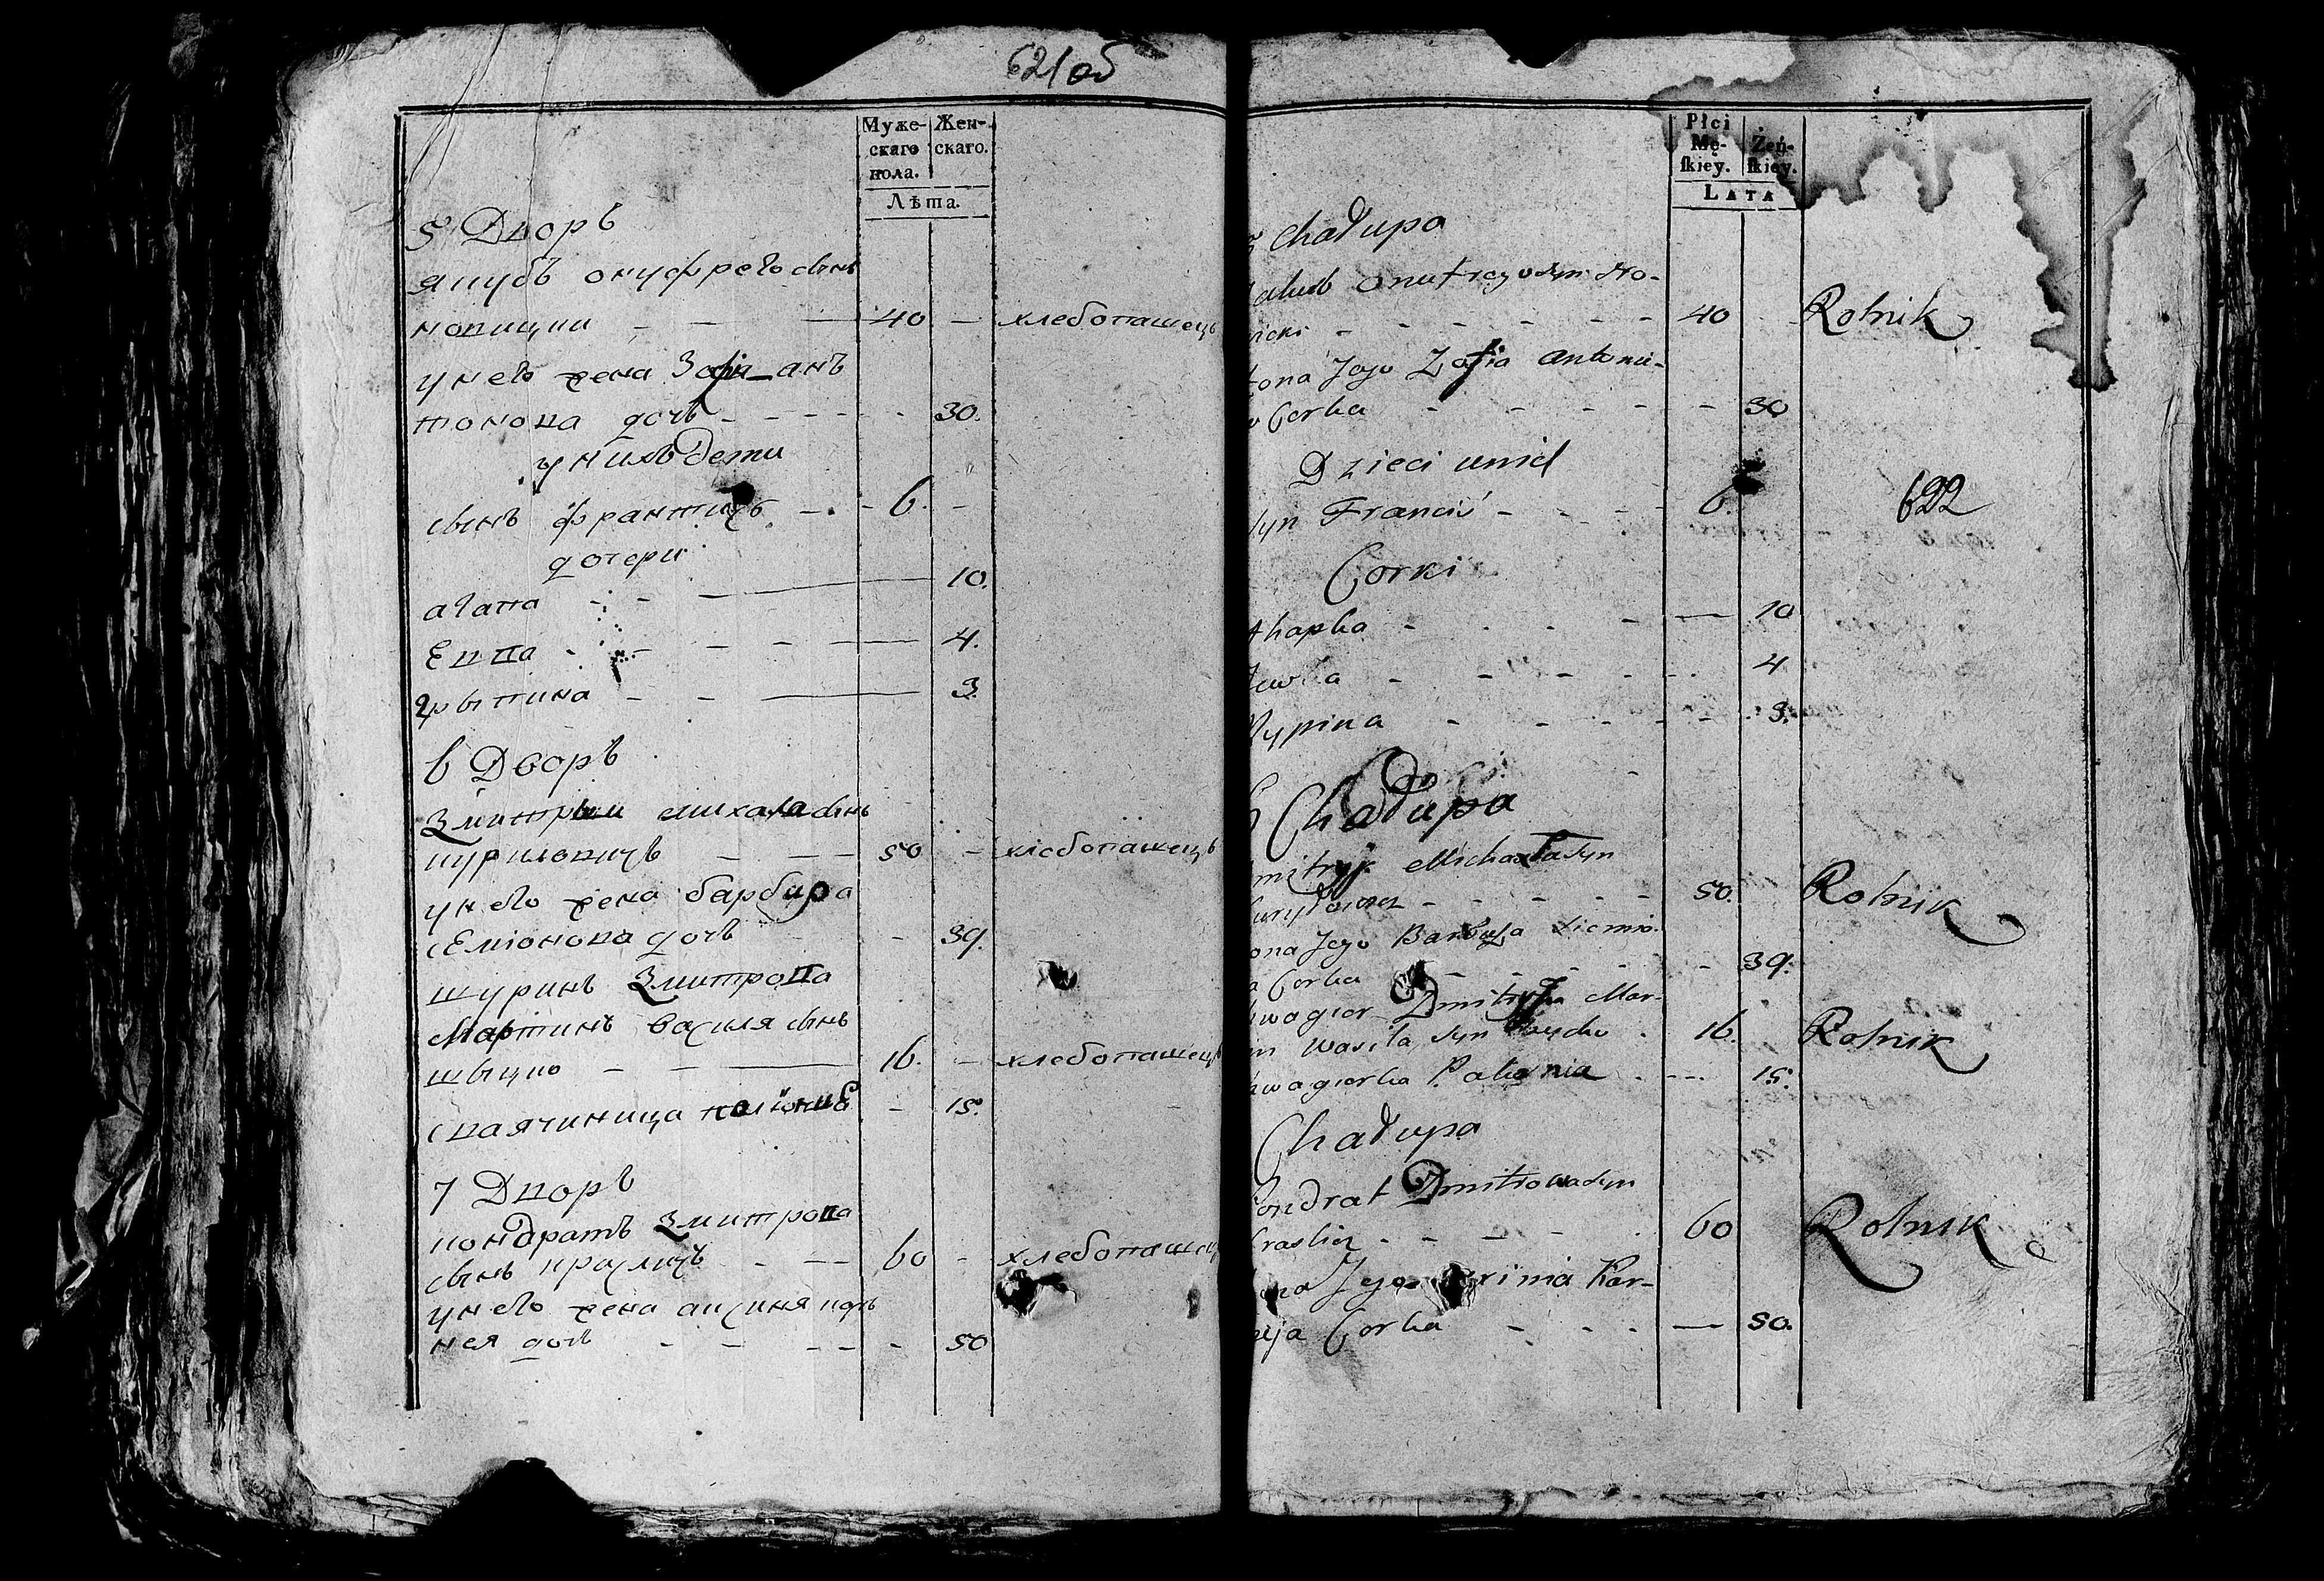 621об
Муже-
скаго
пола.
Жен-
скаго.
Лѣта.
5 Дворъ
якубъ онуфрего сынъ
новицки - - - 40 - хлебопашецъ
у него жена Зофи_ ан
тонова дочъ - - - - - 30.
у нихъ дети
сынъ францишъ - - 6. -
дочери
агапа - - - 10.
Евва - - - - 4.
грыпина - - 3.
6 Дворъ
Змитрыи михала сынъ
курыловичъ - - - 50 - хлебопашецъ
у него жена барбара
семіонова дочъ - - 39.
шуринъ Змитрова
Мартинъ василя сынъ
шыцко - - 16. - хлебопашецъ
своячиница - 15.
7 Дворъ
кондратъ Змитрова
сынъ - - 60 - хлебопашец
у него жена аксиня кор
нея дочъ - - - - - 50
Płci
Mę-
ſkiey.
Żeń-
ſkiey.
LATA
Chałupa
akub onufrego syn No-
wicki - - - - - - 40 - Rolnik
żona Jego Zofia Antoni-
Corka - - - - - 30
Dzieci u nich
syn Francis - - - 6.
622
Corki
Ahapka - - - - 10
Jewka - - - - - 4
Rypina - - - - - 3.
6 Chałupa
mitryj Michała syn
- - - - - 50. Rolnik
ona Jego Barbara Siemio-
a Corka - - - - - 39.
wagier Dmitryja Mar-
in Wasila syn - 16. Rolnik
wagierka - - - 15.
Chałupa
Kondrat Dmitrowa syn
- - - - 60 Rolnik
Jego xinia Kor-
neja Corka - - - - 50.